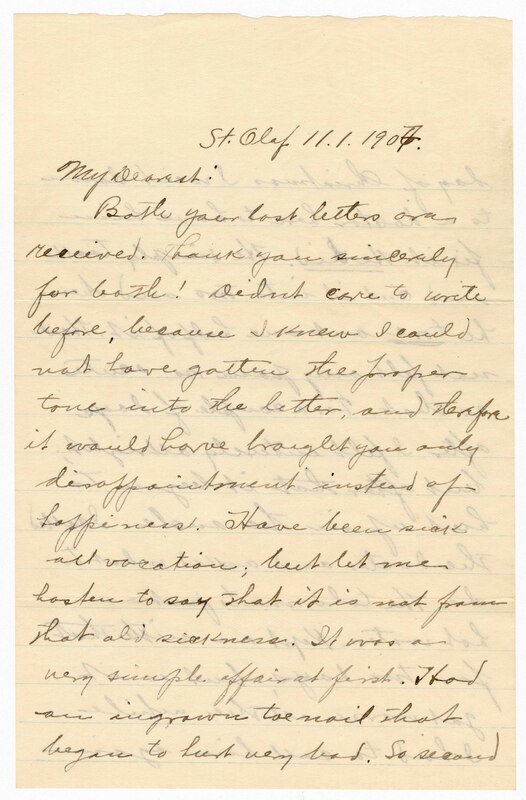 St. Olaf 11.1.1907.
My Dearest:
Both your last letters are
received. Thank you sincerely
for both! Didnt care to write
before, because I knew I could
not have gotten the proper
tone into the letter, and therefore
it would have brought you only
disappointment instead of
happeness. Have been sick
all vacation; but let me
hasten to say that it is not from
that old sickness. It was a
very simple affair at first. Had
an ingrown toe nail that
began to hurt very bad. So second